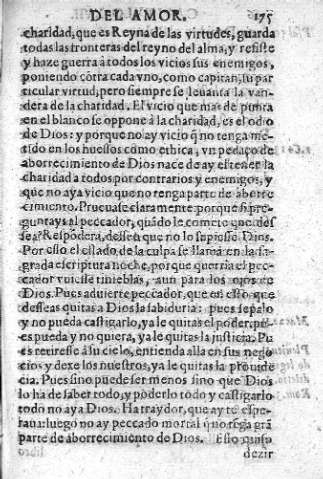 DEL AMOR. 175
charidad, que es Reyna de las virtudes, guarda
todas las fronteras del reyno del alma, y resiste
y haze guerra à todos los vicios sus enemigos,
poniendo cõtra cada vno, como capitan, su par
ticular virtud, pero siempre se leuanta la van
dera de la charidad. El vicio que mas de punta
en el blanco se oppone à la charidad, es el odio
de Dios: y porque no ay vicio q̃ no tenga me-
tido en los huessos como ethica, vn pedaço de
aborrecimiento de Dios nace de ay el tener la
charidad a todos por contrarios y enemigos, y
que no aya vicio que no tenga parte de aborre
cimiento. Prueuase claramente porque si pre-
guntays al peccador, quãdo le comete que des
sea? Respõdera, dessea que no lo supiesse Dios.
Por esso el estado de la culpa se llama en la sa-
grada escriptura noche, porque querria el pec-
cador vuiesse tinieblas, aun para los ojos de
Dios. Pues aduierte peccador, que en esso que
desseas quitas a Dios la sabiduria: pues sepalo
y no pueda castigarlo, ya le quitas el poder, pues
pueda y no quiera, ya le quitas la justicia. Pu
es retiresse à su cielo, entienda alla en sus nego
cios y dexe los nuestros, ya le quitas la prouidẽ
cia. Pues sino puede ser menos sino que Dios
lo ha de saber todo, y poderlo todo y castigarlo
todo no aya Dios. Ha traydor, que ay te espe-
raua luego no ay peccado mortal q̃ no tẽga grã
parte de aborrecimiento de Dios. Esso quiso
dezir